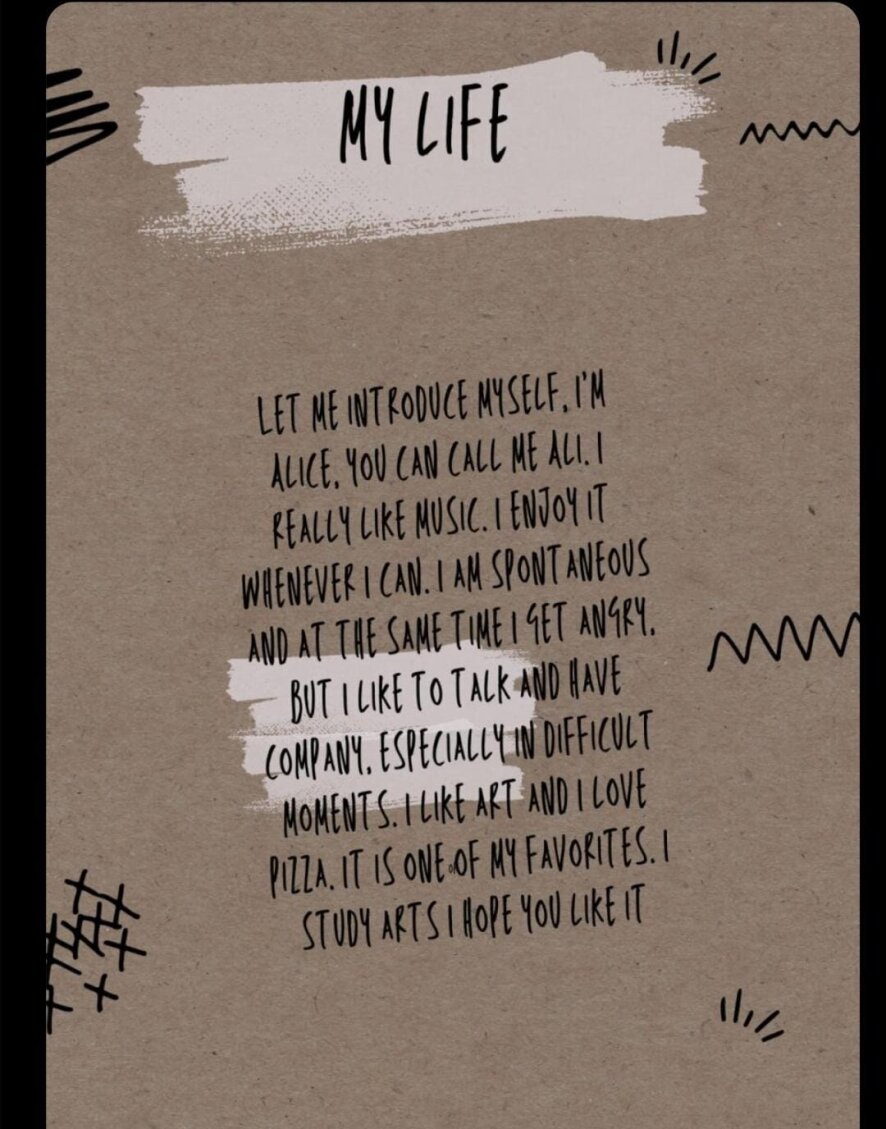 MY LIFE
LET ME INTRODUCE MYSELF, I'M
ALICE, YOU CAN CALL ME ALI. I
REALLY LIKE MUSIC. I ENJOY IT
WHENEVER I CAN. I AM SPONTANEOUS
AND AT THE SAME TIME I GET ANGRY,
BUT I LIKE TO TALK AND HAVE
COMPANY, ESPECIALLY IN DIFFICULT
MOMENTS. I LIKE ART AND I LOVE
PIZZA. IT IS ONE OF MY FAVORITES. I
STUDY ARTS I HOPE YOU LIKE IT